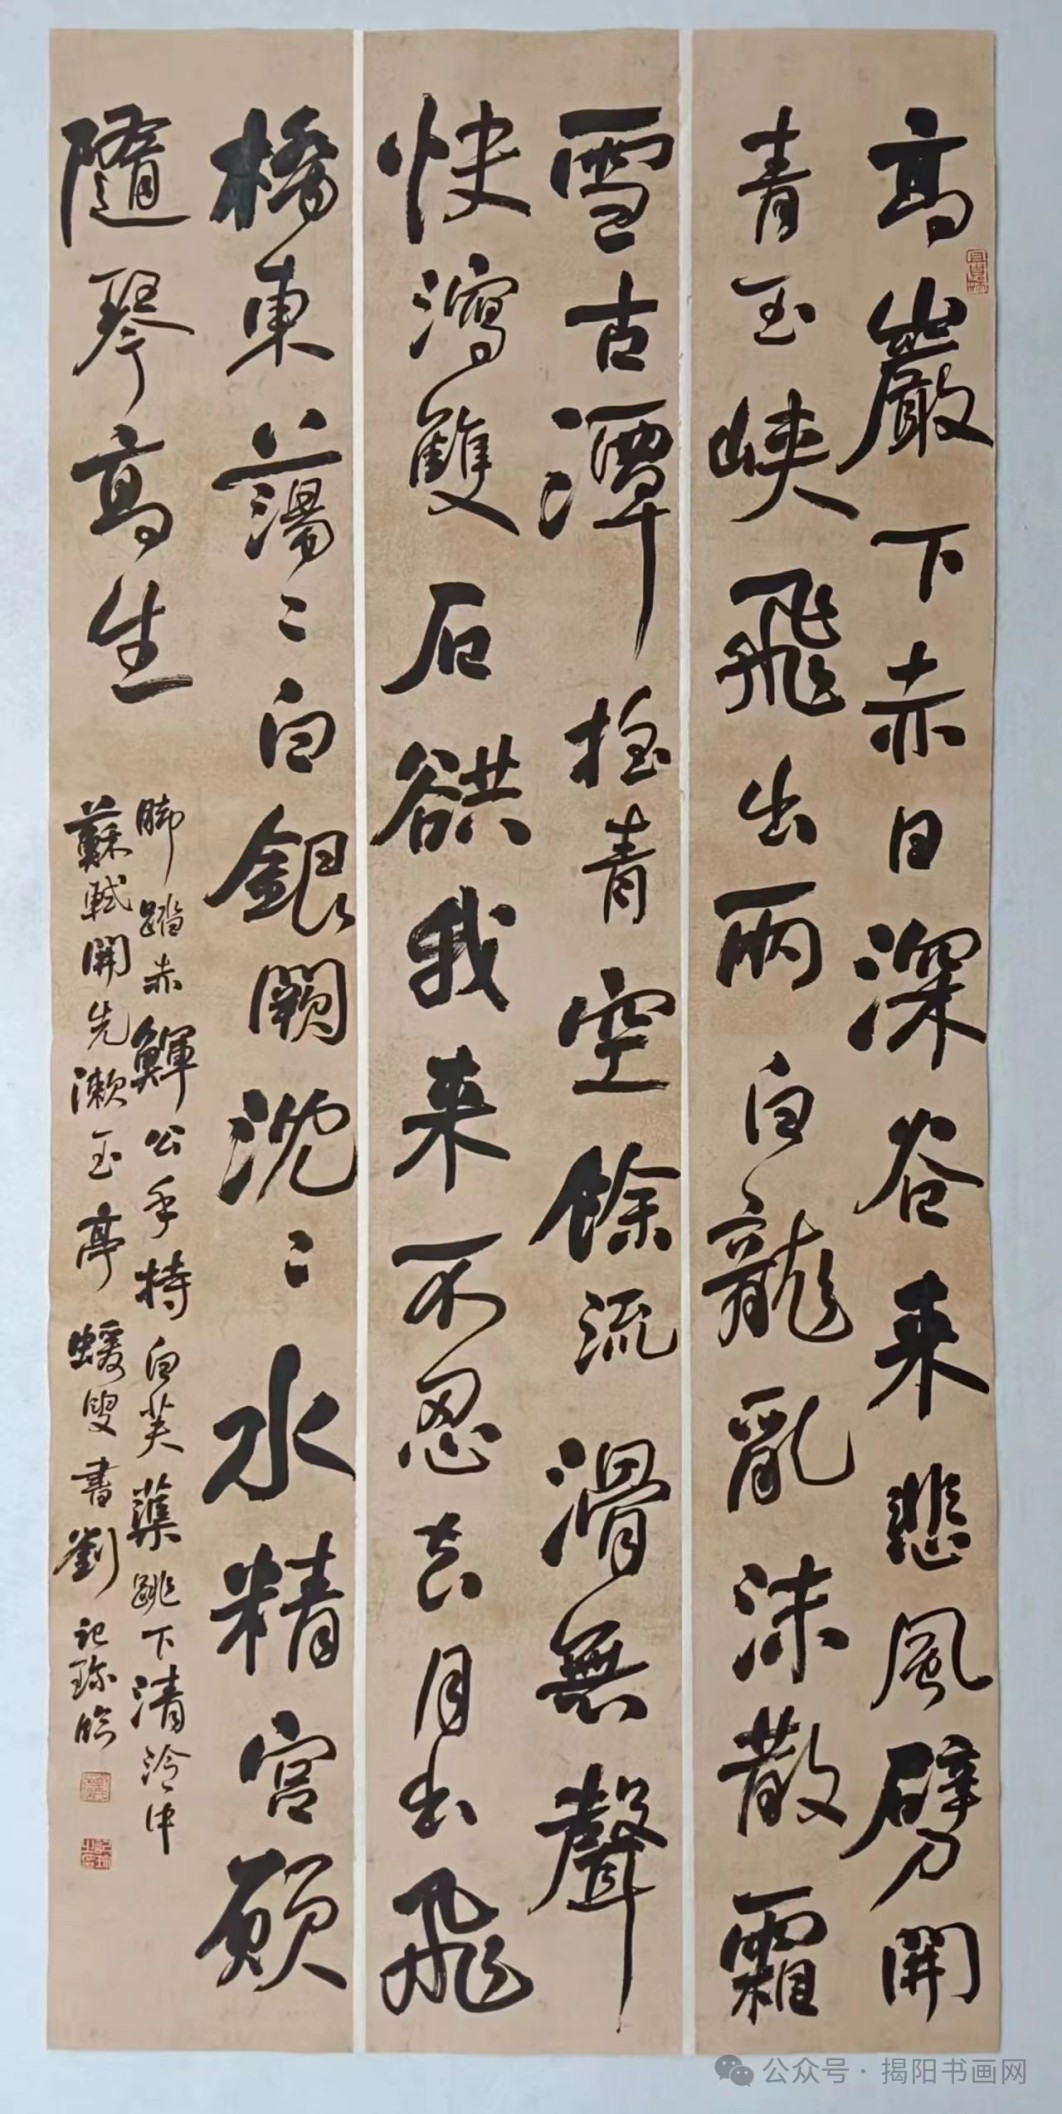 高巖下赤日深谷来悲風劈開
青玉峽飛出兩白龍亂沫散霜
雪古潭搖青空餘流滑無聲
快瀉雙石谼我来不忍去月出飛
橋東蕩〻白銀闕沈〻水精宮願
隨琴高生
脚踏赤鯶公手持白芙蕖跳下清泠中
蘇軾開先漱玉亭 蝯叟書劉記珍臨
公众号·揭阳书画网